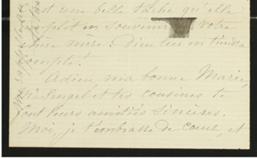 est une belle tâche qu'elle
en souvenir votre
mère: Dieu lui en tiendra
compte!
Adieu ma bonne Marie,
et les cousines te
font leurs amitiés sincères.
Moi, je t'embrasse de coeur, et